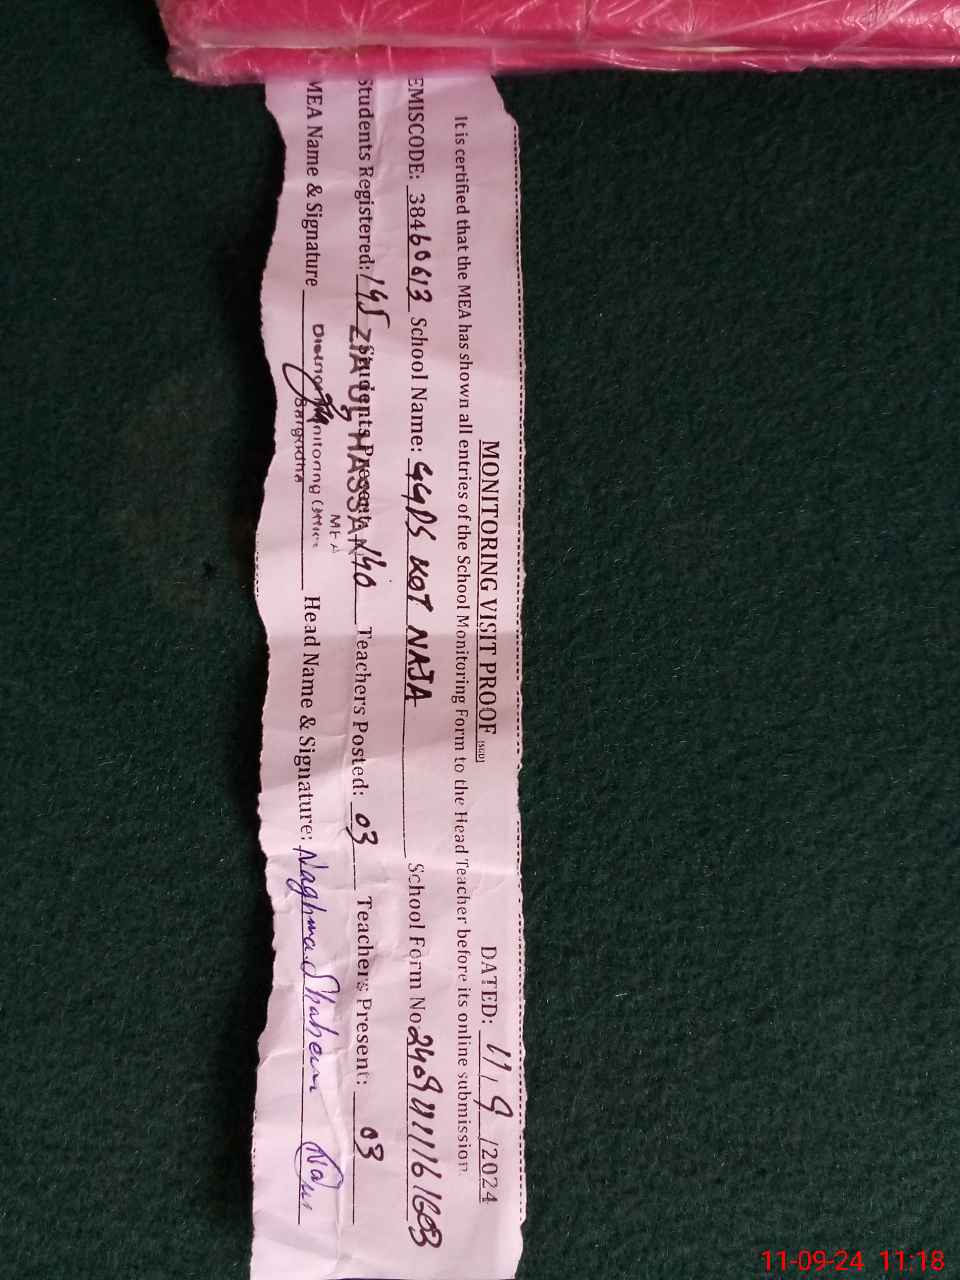 MONITORING VISIT PROOF (SGD) DATED: 11/9/2024
It is certified that the MEA has shown all entries of the School Monitoring Form to the Head Teacher before its online submission.
EMISCODE: 38460613 School Name: GGPS KOT NAJA School Form No
Students Registered: 145 Students Present: 140 Teachers Posted: 03 Teachers Present: 03
ZIA UL HASSAN
MEA
MEA Name & Signature Head Name & Signature: Naghma Shaheen
District Monitoring Officer
Sargodha
11-09-24 11:18